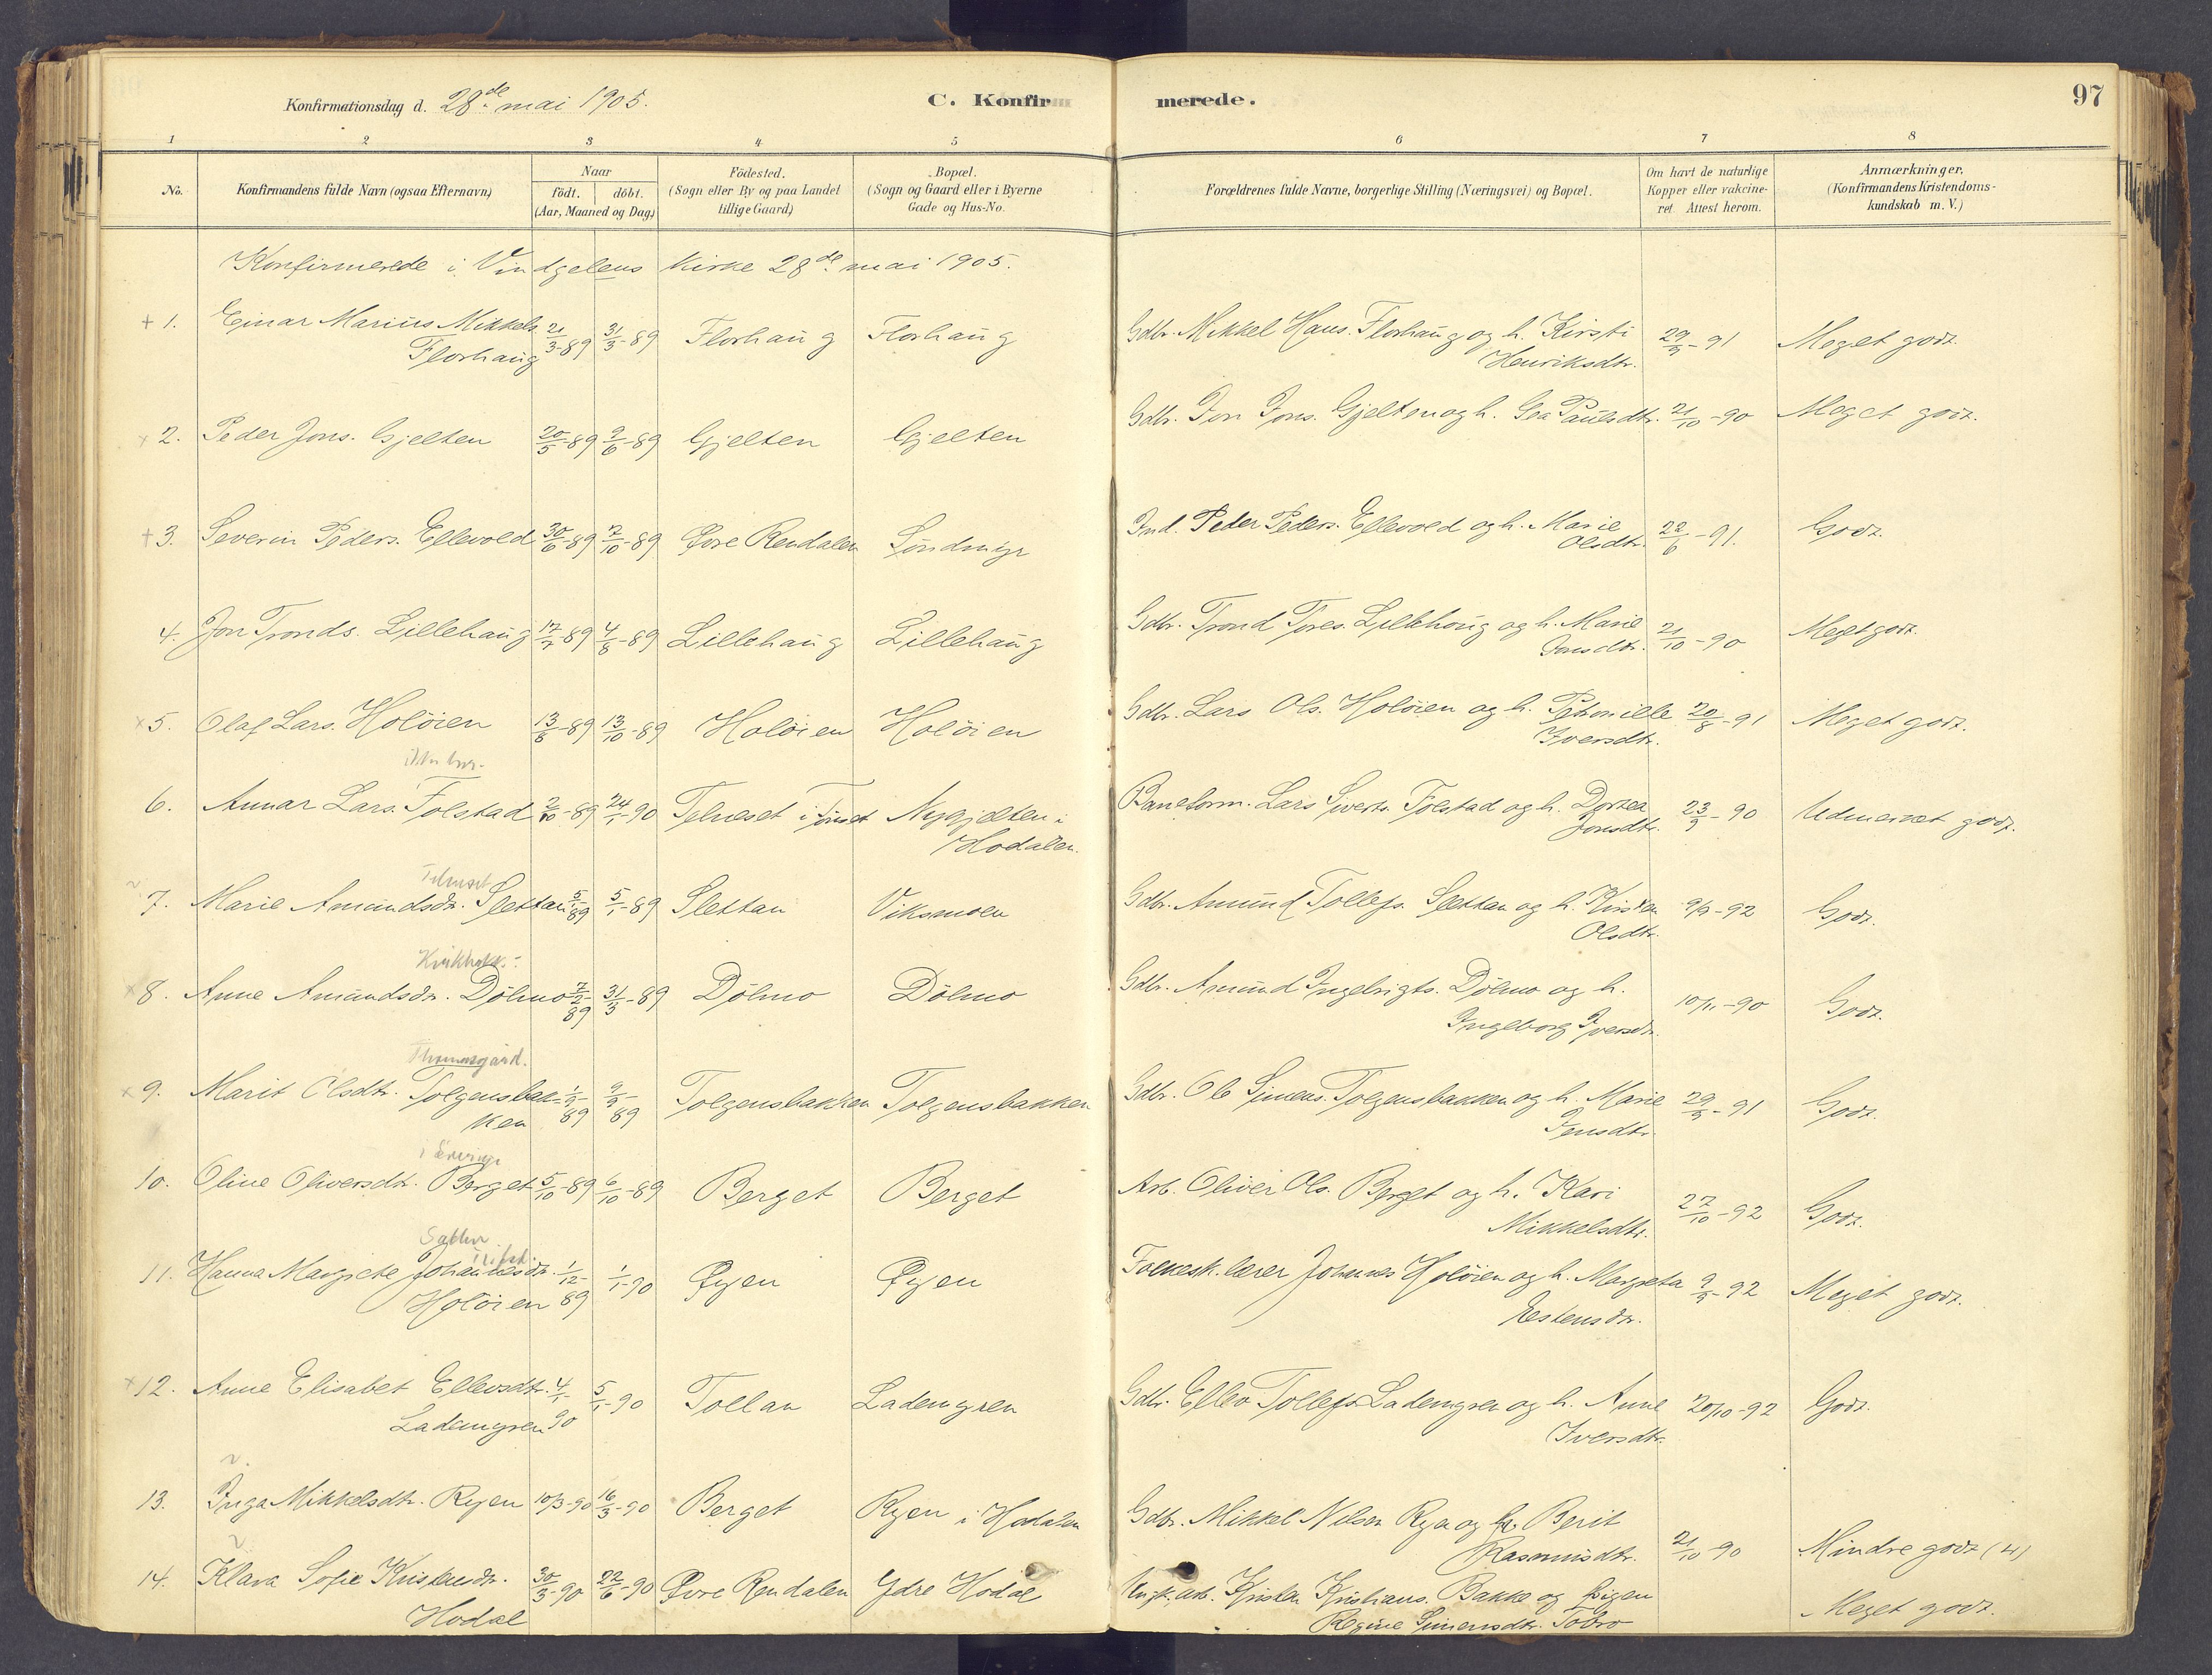 Konfirmationsdag d. 28de mai 1905.
C. Konfirmerede.
97
1 2 3 4 5 6 7 8
No.
Konfirmandens fulde Navn (ogsaa Efternavn)
Naar
födt. döbt.
(Aar, Maaned og Dag)
Födested.
(Sogn eller By og paa Landet
tillige Gaard)
Bopæl.
(Sogn og Gaard eller i Byerne
Gade og Hus-No.
Forældrenes fulde Navne, borgerlige Stilling (Næringsvei) og Bopæl.
Om havt de naturlige
Kopper eller vakcine-
ret. Attest herom.
Anmærkninger,
(Konfirmandens Kristendoms-
kundskab m. V.)
Konfirmerede i Vindgelens kirke 28de mai 1905.
+ 1. Einar Marius Mikkels. 21/3-89 31/3-89 Florhaug Florhaug Gdbr. Mikkel Hans. Florhaug og h. Kirsti 29/9-91 Meget godt.
Florhaug Henriksdtr.
x 2. Peder Jons. Gjelten 20/5-89 9/6-89 Gjelten Gjelten Gdbr. Jon Jons. Gjelten og h. Gea Paulsdtr. 21/10-90 Meget godt.
+ 3. Severin Peders. Ellevold 30/6-89 7/10-89 Øvre Rendalen Søndmyr Ind. Peder Peders. Ellevold og h. Marie 22/6-91. Godt.
Olsdtr.
4. Jon Tronds. Lillehaug 17/7-89 4/8-89 Lillehaug Lillehaug Gdbr. Trond Tores. Lillehoug og h. Marie 21/10-90 Meget godt.
Jonsdtr.
x 5. Olaf Lars. Holöien 13/8-89 13/10-89 Holöien Holöien Gdbr. Lars Ols. Holöien og h. Petronille 20/8-91 Meget godt.
Iversdtr.
6. Annar Lars. Folstad 2/10-89 24/1-90 Telneset i Tönset Nygjelten i Baneform. Lars Siverts. Folstad og h. Dortea 23/9-90 Udmerket godt.
Hodalen. Jonsdtr.
Telneset
7. Marie Amundsdr. Slettan 5/1 89 5/1-89 Slettan Viksmoen Gdbr. Amund Tollefs. Slettan og h. Kirsten 9/9-92 Godt.
Olsdtr.
8. Anne Amundsdr. Dölmo 7/2-89 31/3-89 Dölmo Dölmo Gdbr. Amund Ingebrigts. Dölmo og h. 10/11-90 Godt.
Ingeborg Iversdr.
x 9. Marit Olsdtr. Tolgensbak= 1/9-89 9/9-89 Tolgensbakken Tolgensbakken Gdbr. Ole Simens. Tolgensbakken og h. Marie 29/9-91 Godt.
ken Jensdtr.
10. Oline Oliversdtr. Berget 5/10-89 6/10-89 Berget Berget Arb. Oliver Ols. Berget og h. Kari 27/10-92 Godt.
Mikkelsdtr.
11. Hanna Margrete Johannesdr. 1/12-89 1/1-90 Øyen Øyen Folkesk. lærer Johannes Holöien og h. Margreta 9/9-92 Meget godt.
Holöien Estensdr.
x 12. Anne Elisabet Ellevsdtr. 4/1-90 5/1-90 Tollan Lademyren Gdbr. Ellev Tollefs. Lademyren og h. Anne 20/10-92 Godt.
Lademyren Iversdtr.
13. Inga Mikkelsdtr. Ryen 10/3-90 16/3-90 Berget Ryen i Hodalen Gdbr. Mikkel Nilsen Ryen og h. Berit 21/10 90 Mindre godt (4)
Rasmusdtr.
14. Klara Sofie Kristensdr. 30/3-90 22/6-90 Øvre Rendalen Ydre Hodal Ungk. arb. Kristen Kristians. Bakke og Pigen Meget godt.
Hodal Regine Simensdtr. Tobro